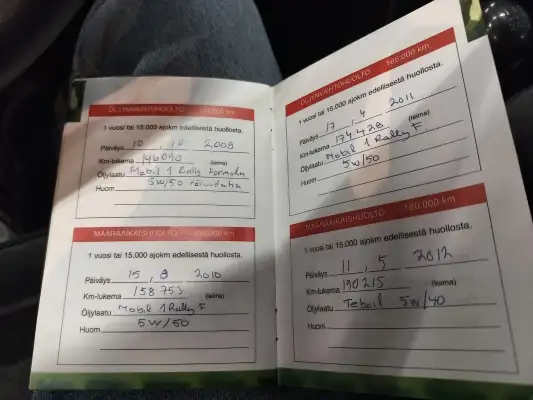 ÖLJYNVAIHTOHUOLTO km
1 vuosi tai 15.000 ajokm edellisestä huollosta.
Päiväys 10 . 10 2009
Km-lukema 146090 (leima)
Öljylaatu Mobil 1 Rally Formula
Huom 5W/50
MÄÄRÄAIKAISHUOLTO km
1 vuosi tai 15.000 ajokm edellisestä huollosta.
Päiväys 15 , 8 2010
Km-lukema 158753 (leima)
Öljylaatu Mobil 1 Rally F
Huom 5W/50
ÖLJYNVAIHTOHUOLTO 165.000 km
1 vuosi tai 15.000 ajokm edellisestä huollosta.
Päiväys 17 , 4 2011
Km-lukema 174428 (leima)
Öljylaatu Mobil 1 Rally F.
Huom 5W/50
MÄÄRÄAIKAISHUOLTO 180.000 km
1 vuosi tai 15.000 ajokm edellisestä huollosta.
Päiväys 11 , 5 2012
Km-lukema 190215 (leima)
Öljylaatu Teboil 5W/40
Huom